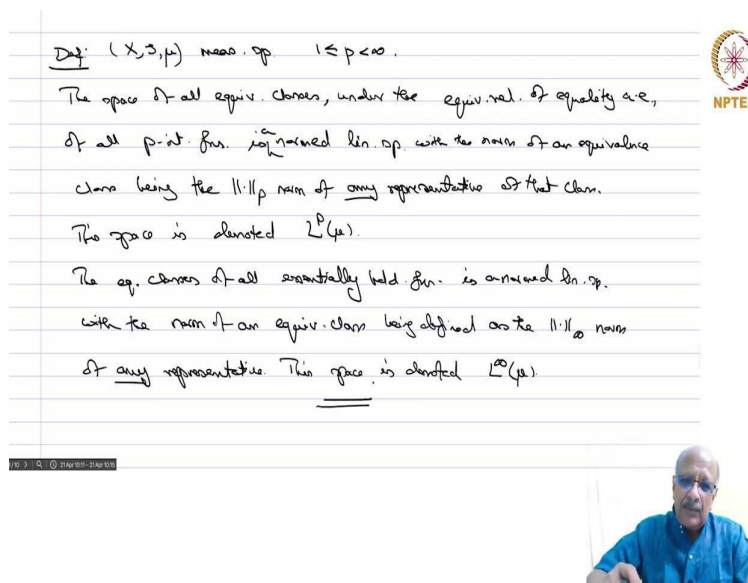 Def: (X, S, μ) meas. sp. 1 ≤ p < ∞.
The space of all equiv. classes, under the equiv. rel. of equality a.e,
of all p-int. fns. is a normed lin. sp. with the norm of an equivalence
class being the ||·||p norm of any representative of that class.
This space is denoted L^p(μ).
The eq. classes of all essentially bdd. fns. is a normed lin. sp.
with the norm of an equiv. class being defined as the ||·||∞ norm
of any representative. This space is denoted L^∞(μ).
NPTE
21 Apr 10:11 - 21 Apr 10:15